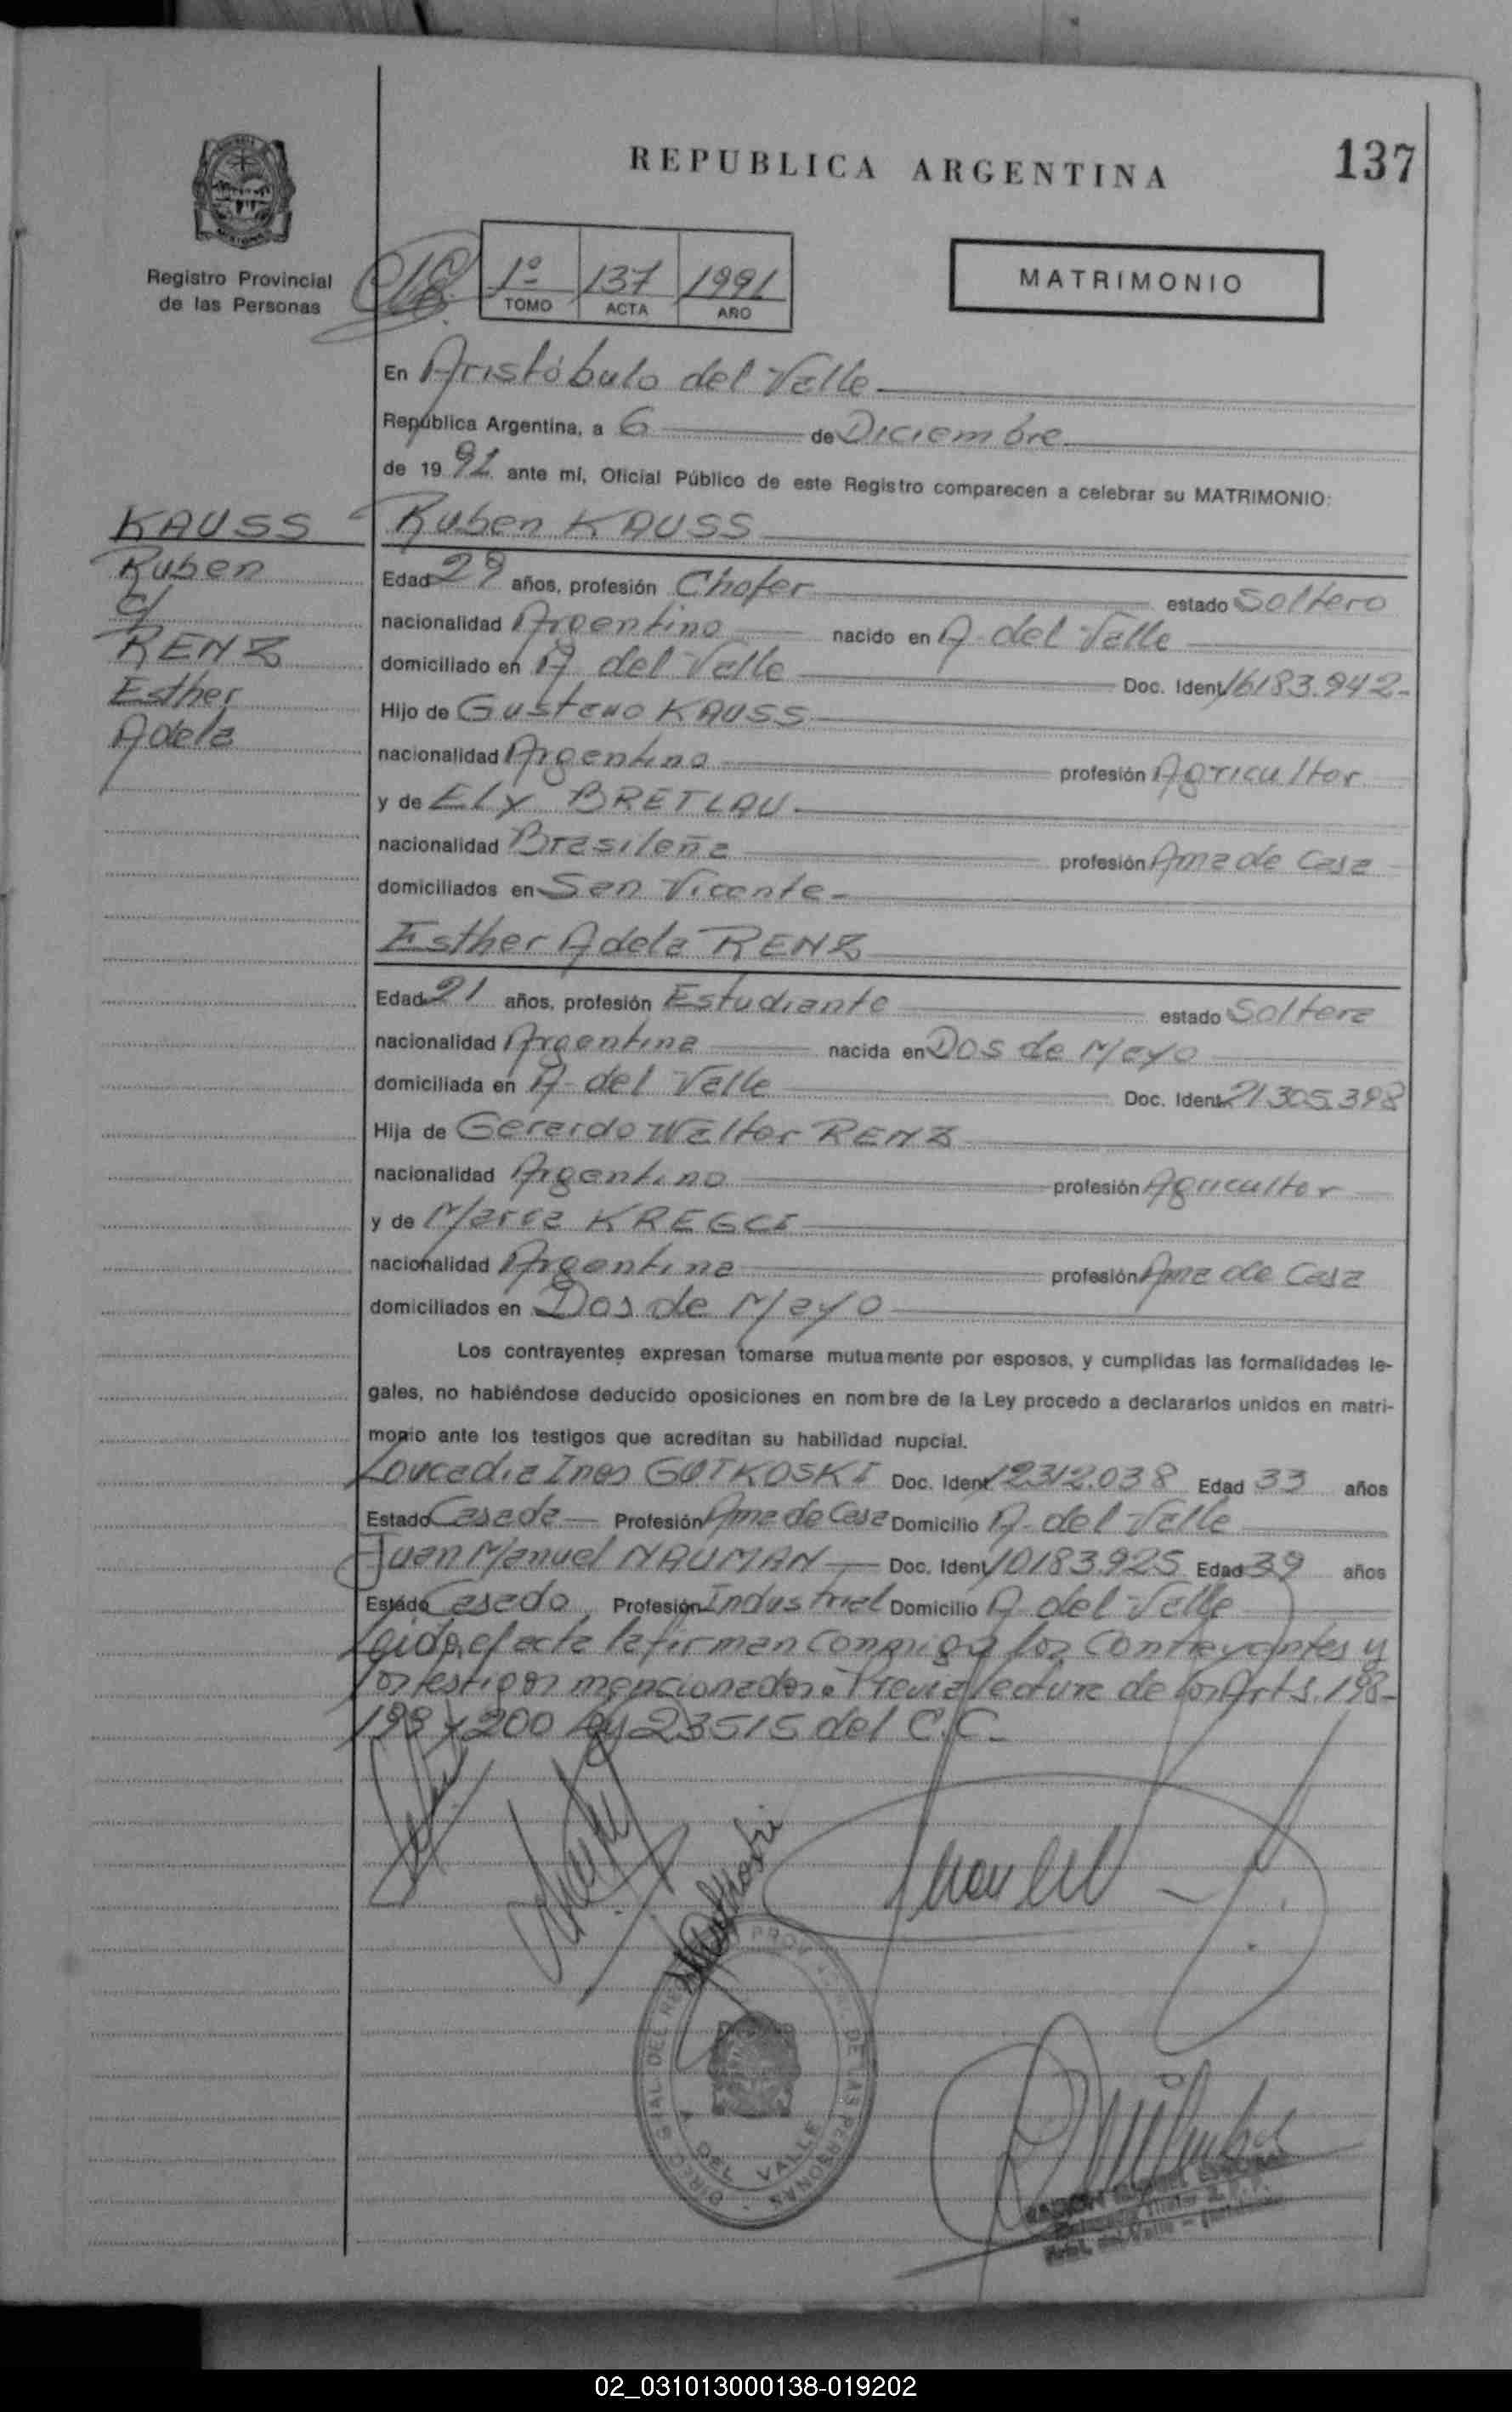 137
REPUBLICA ARGENTINA
Registro Provincial
de las Personas
1º 137 1991
TOMO ACTA AÑO
MATRIMONIO
En Aristóbulo del Valle
República Argentina, a 6 de Diciembre
de 1991 ante mí, Oficial Público de este Registro comparecen a celebrar su MATRIMONIO:
KAUSS
Ruben
c/
RENZ
Esther
Adela
Ruben KAUSS
Edad 29 años, profesión Chofer estado Soltero
nacionalidad Argentino nacido en A. del Valle
domiciliado en A. del Valle Doc. Ident. 16183.942-
Hijo de Gustavo KAUSS
nacionalidad Argentino profesión Agricultor
y de Ely BRETLAU
nacionalidad Brasileña profesión Ama de Casa
domiciliados en San Vicente-
Esther Adela RENZ
Edad 21 años, profesión Estudiante estado Soltera
nacionalidad Argentina nacida en Dos de Mayo
domiciliada en A. del Valle Doc. Ident. 21.305.398
Hija de Gerardo Walter RENZ
nacionalidad Argentino profesión Agricultor
y de María KREGCI
nacionalidad Argentina profesión Ama de Casa
domiciliados en Dos de Mayo
Los contrayentes expresan tomarse mutuamente por esposos, y cumplidas las formalidades le-
gales, no habiéndose deducido oposiciones en nombre de la Ley procedo a declararlos unidos en matri-
monio ante los testigos que acreditan su habilidad nupcial.
Loucadia Ines GUTKOSKI Doc. Ident. 12312.038 Edad 33 años
Estado Casada Profesión Ama de Casa Domicilio A. del Valle
Juan Manuel NAUMAN Doc. Ident. 10183.925 Edad 39 años
Estado Casado Profesión Industrial Domicilio A. del Valle
Leida el acta la firman conmigo los Contrayentes y
los testigos mencionados. Previa lectura de los Arts. 198-
199 y 200 Ley 23515 del C.C.
DEL VALLE
DE LAS PERSONAS
02_031013000138-019202